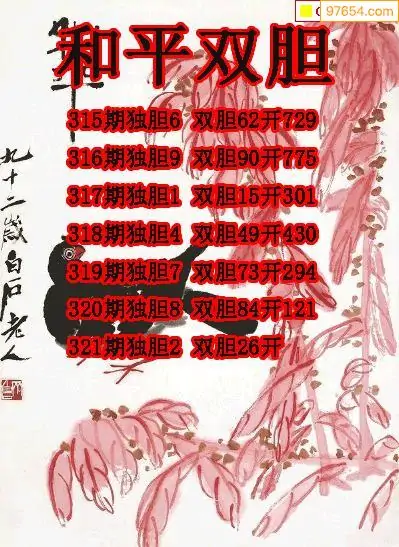 97654.com
和平双胆
315期独胆6 双胆62开729
316期独胆9 双胆90开775
317期独胆1 双胆15开301
318期独胆4 双胆49开430
319期独胆7 双胆73开294
320期独胆8 双胆84开121
321期独胆2 双胆26开
九十二歲白石老人